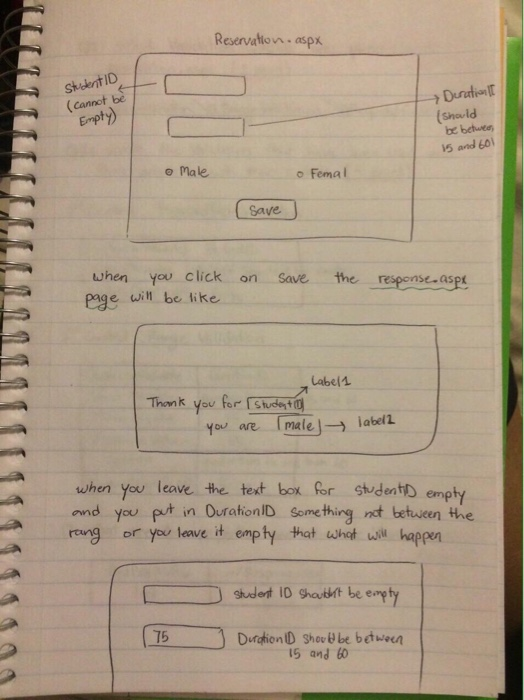 Reservation.aspx
StudentID
(cannot be
Empty)
(should
be between
15 and 60)
Male
Femal
Save
when you click on save the response.aspx
page will be like
Label1
Thank you for StudentID
you are male label2
when you leave the text box for studentID empty
and you put in DurationID something not between the
rang or you leave it empty that what will happen
student ID shouldn't be empty
75
DurationID should be between
15 and 60